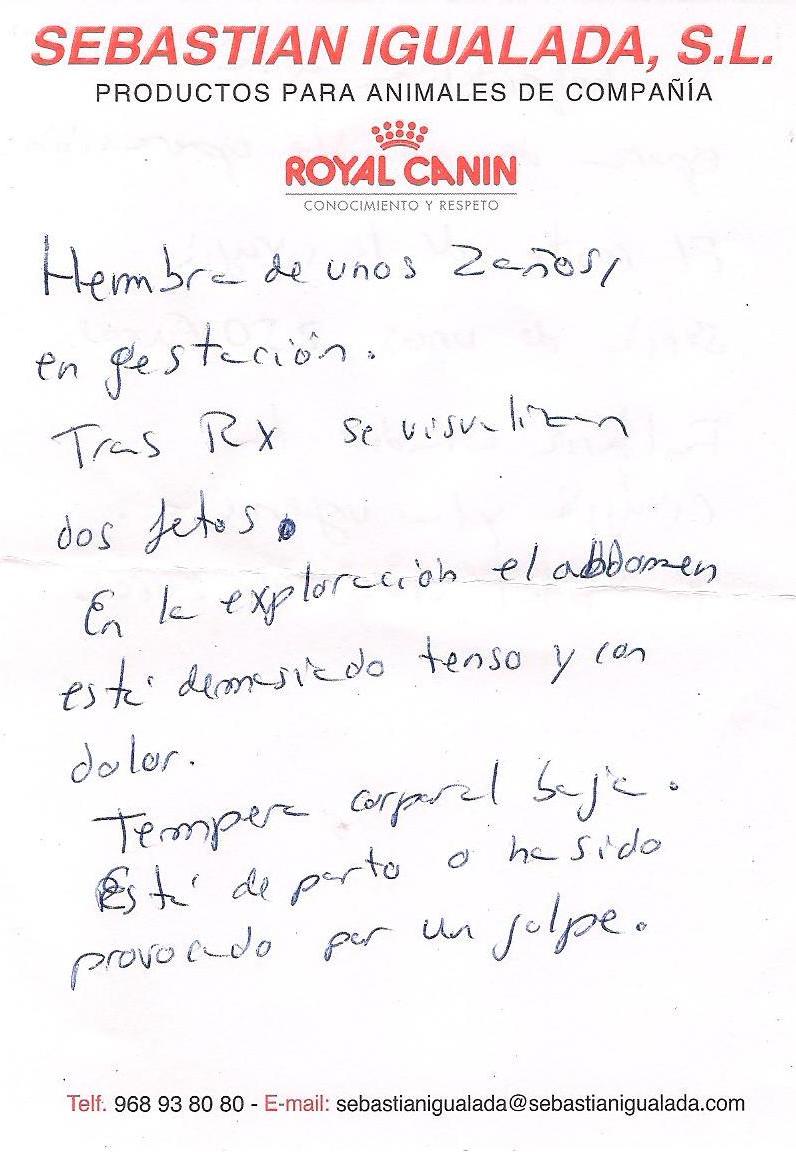 SEBASTIAN IGUALADA, S.L.
PRODUCTOS PARA ANIMALES DE COMPAÑÍA
ROYAL CANIN
CONOCIMIENTO Y RESPETO
Hembra de unos 2 años,
en gestación.
Tras RX se visualizan
dos fetos.
En la exploración el abdomen
está demasiado tenso y con
dolor.
Tempera corporal baja.
Está de parto o ha sido
provocado por un golpe.
Telf. 968 93 80 80 - E-mail: sebastianigualada@sebastianigualada.com